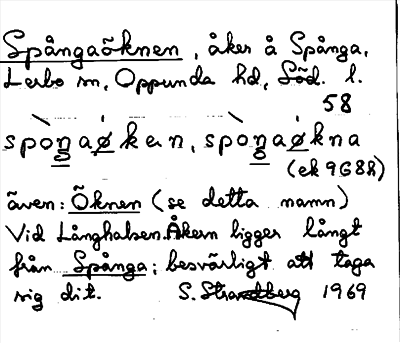 Spångaöknen, åker å Spånga,
Lerbo sn, Oppunda hd, Söd. l.
58
spo̱ŋaø̱kən, spo̱ŋaø̱kna
(ek 9G8h)
även: Öknen (se detta namn)
Vid Långhalsen. Åkern ligger långt
från Spånga; besvärligt att taga
sig dit. S. Strandberg 1969